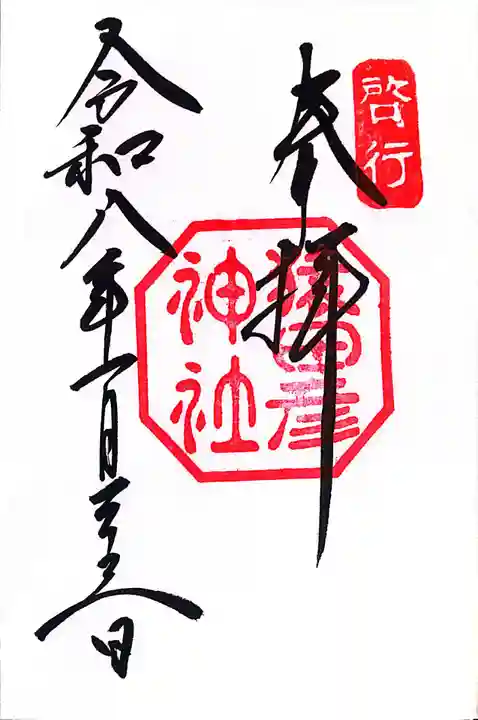 啓行
奉拝
猿田彦
神社
令和八年一月日